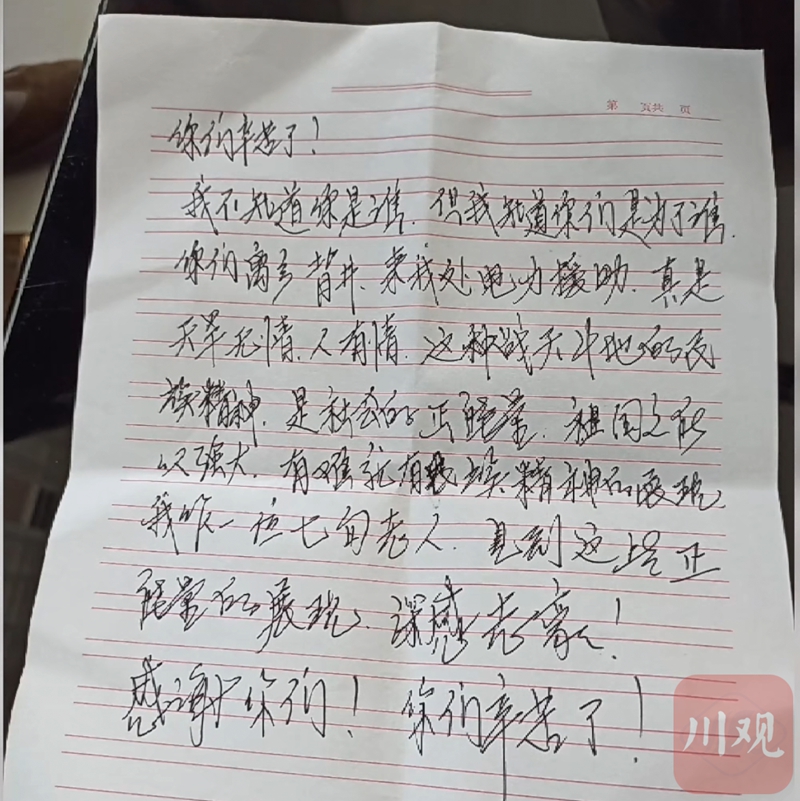 第 页共 页
你们辛苦了！
我不知道你是谁，但我知道你们是为了谁．
你们离乡背井，来我处电力援助，真是
天旱无情，人有情，这种战天斗地的民
族精神，是社会的正能量，祖国之所
以强大，有难就有民族精神的展现
我作一位七旬老人，见到这些正
能量的展现，深感
感谢你们！你们辛苦了！
川观